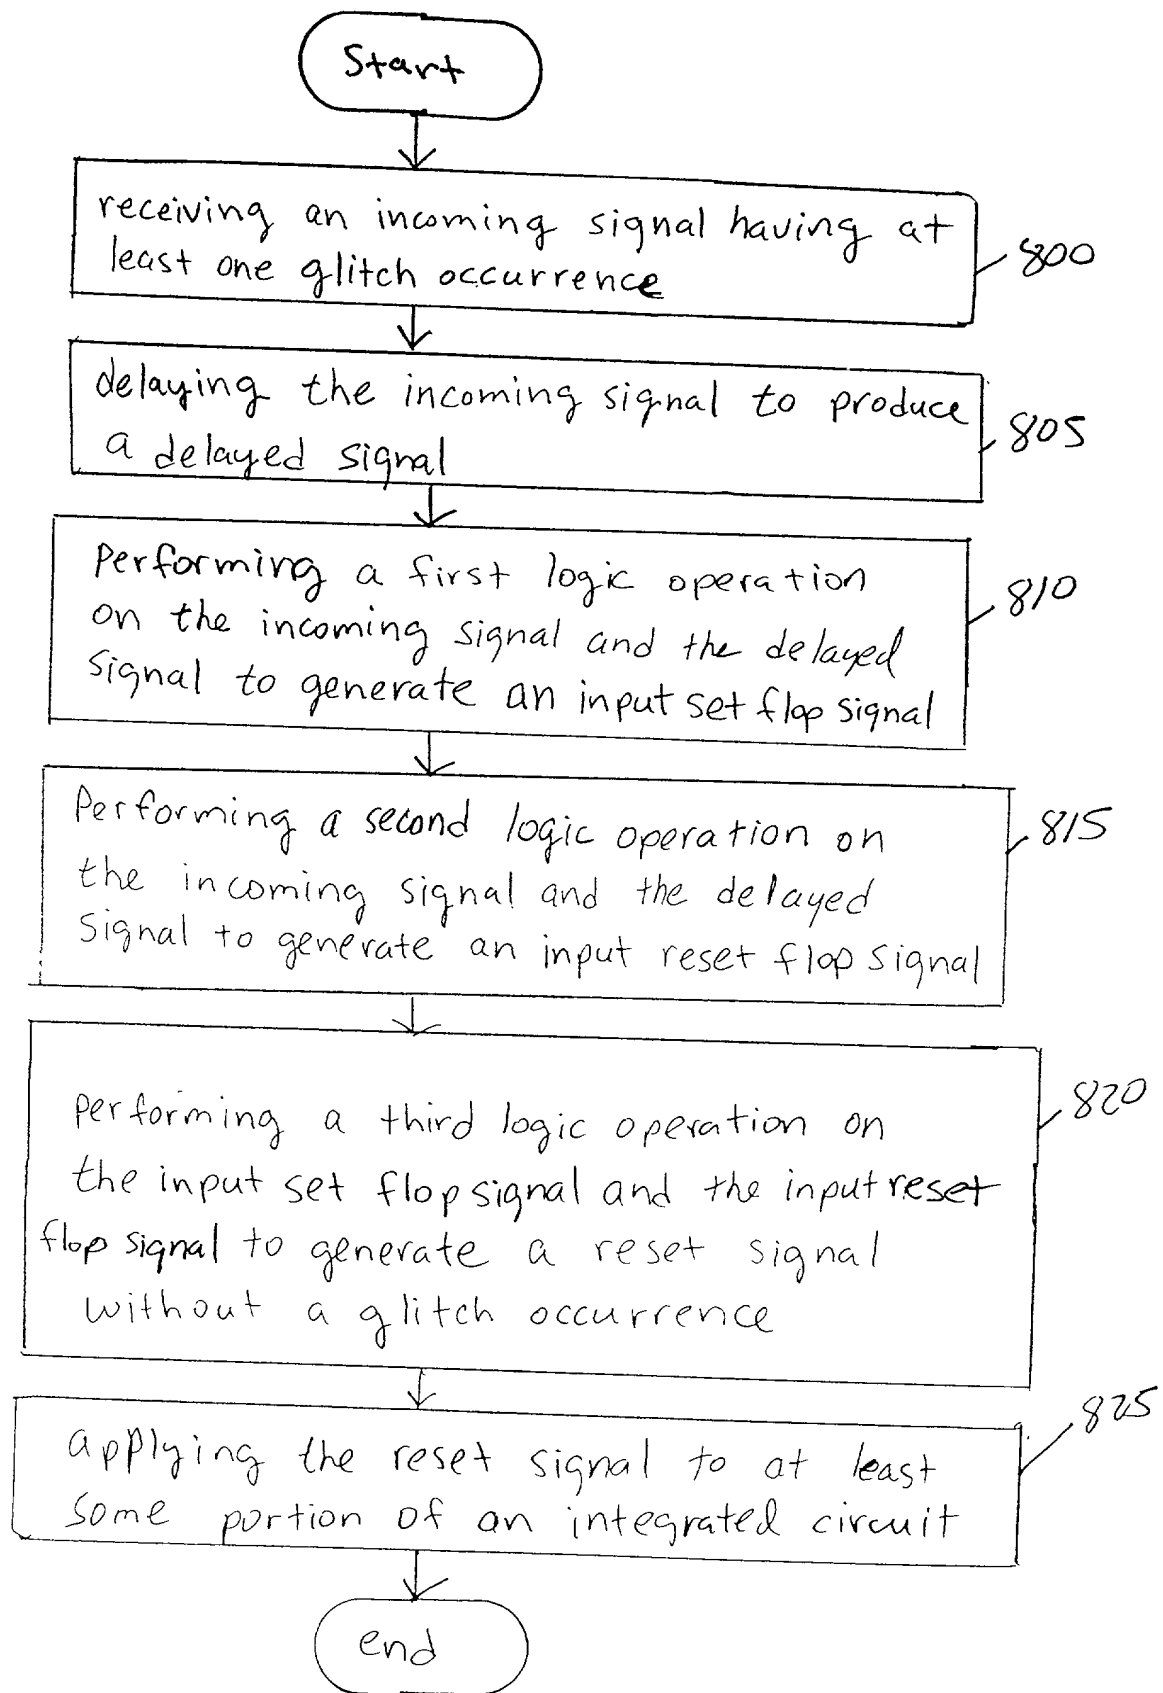 Start
receiving an incoming signal having at
least one glitch occurrence
800
delaying the incoming signal to produce
a delayed signal
805
Performing a first logic operation
on the incoming signal and the delayed
signal to generate an input set flop signal
810
Performing a second logic operation on
the incoming signal and the delayed
signal to generate an input reset flop signal
815
performing a third logic operation on
the input set flop signal and the input reset
flop signal to generate a reset signal
without a glitch occurrence
820
applying the reset signal to at least
some portion of an integrated circuit
825
end